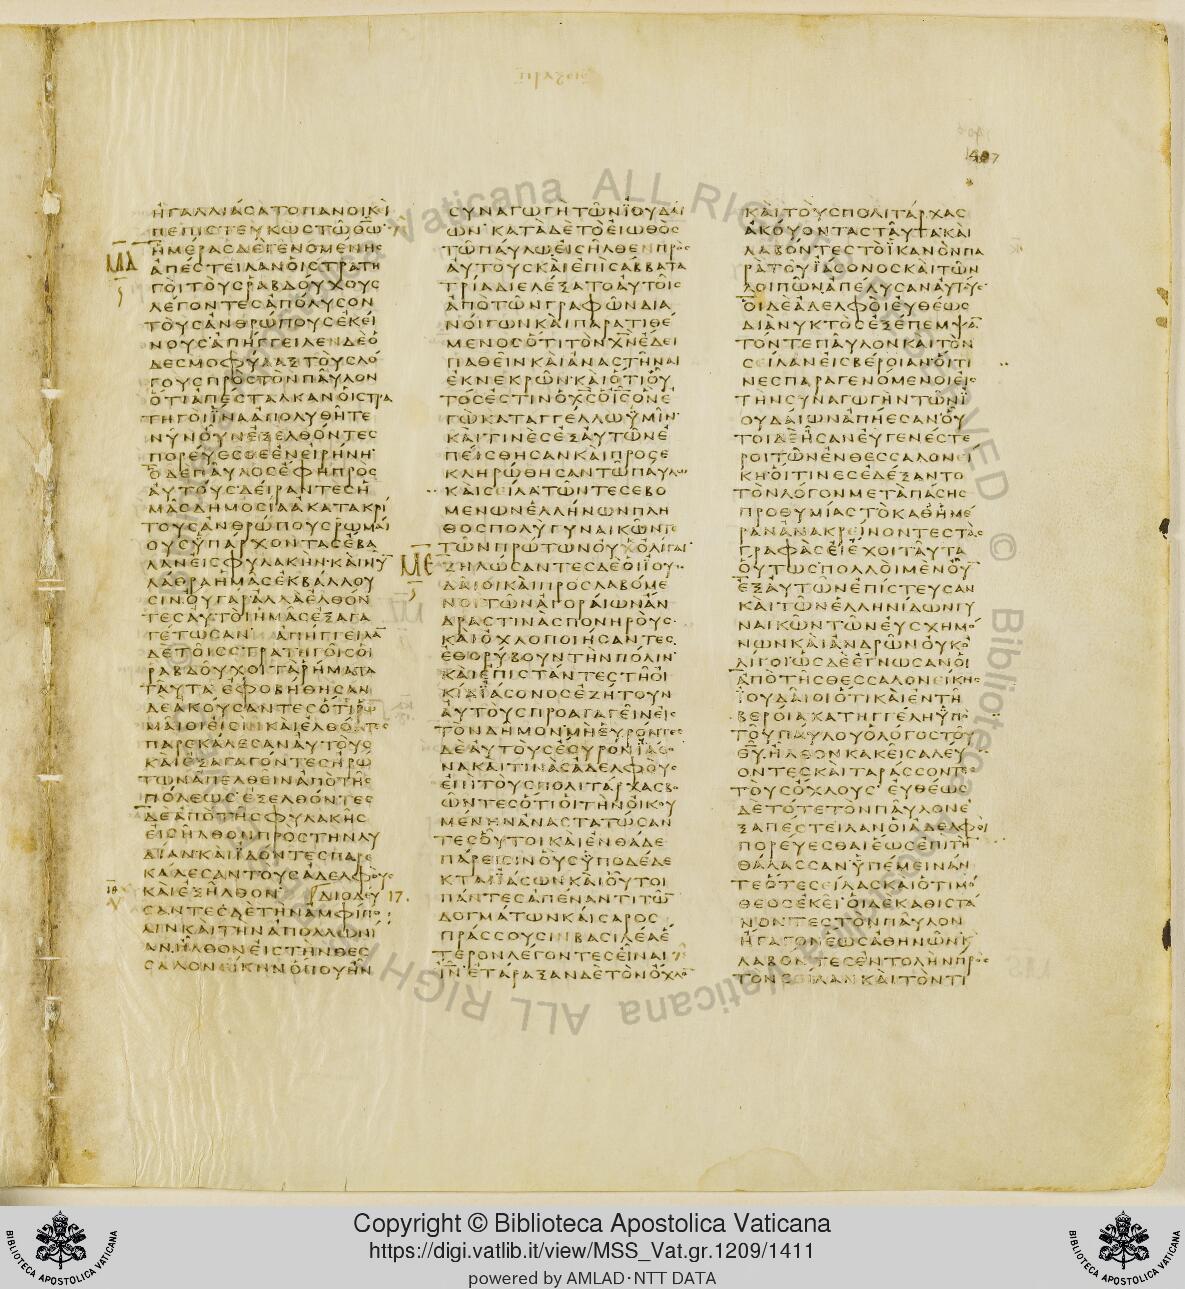 πραξεισ
1407
ΗΓΑΛΛΙΑCΑΤΟΠΑΝΟΙΚΙ
ΠΕΠΙCΤΕΥΚΩCΤΩΘΩ
ΗΜΕΡΑCΔΕΓΕΝΟΜΕΝΗC
ΜΑ
ΑΠΕCΤΕΙΛΑΝΟΙCΤΡΑΤΗ
ΓΟΙΤΟΥCΡΑΒΔΟΥΧΟΥC
ΛΕΓΟΝΤΕCΑΠΟΛΥCΟΝ
ΤΟΥCΑΝΘΡΩΠΟΥCΕΚΕΙ
ΝΟΥCΑΠΗΓΓΕΙΛΕΝΔΕΟ
ΔΕCΜΟΦΥΛΑΞΤΟΥCΛΟ
ΓΟΥCΠΡΟCΤΟΝΠΑΥΛΟΝ
ΟΤΙΑΠΕCΤΑΛΚΑΝΟΙCΤΡΑ
ΤΗΓΟΙΙΝΑΑΠΟΛΥΘΗΤΕ
ΝΥΝΟΥΝΕΞΕΛΘΟΝΤΕC
ΠΟΡΕΥΕCΘΕΕΝΕΙΡΗΝΗ
ΟΔΕΠΑΥΛΟCΕΦΗΠΡΟC
ΑΥΤΟΥCΔΕΙΡΑΝΤΕCΗ
ΜΑCΔΗΜΟCΙΑΑΚΑΤΑΚΡΙ
ΤΟΥCΑΝΘΡΩΠΟΥCΡΩΜΑΙ
ΟΥCΥΠΑΡΧΟΝΤΑCΕΒΑ
ΛΑΝΕΙCΦΥΛΑΚΗΝΚΑΙΝΥ
ΛΑΘΡΑΗΜΑCΕΚΒΑΛΛΟΥ
CΙΝΟΥΓΑΡΑΛΛΑΕΛΘΟΝ
ΤΕCΑΥΤΟΙΗΜΑCΕΞΑΓΑ
ΓΕΤΩCΑΝ ΑΠΗΓΓΕΙΛΑ
ΔΕΤΟΙCCΤΡΑΤΗΓΟΙCΟΙ
ΡΑΒΔΟΥΧΟΙΤΑΡΗΜΑΤΑ
ΤΑΥΤΑΕΦΟΒΗΘΗCΑΝ
ΔΕΑΚΟΥCΑΝΤΕCΟΤΙΡΩ
ΜΑΙΟΙΕΙCΙΝΚΑΙΕΛΘΟΝΤΕC
ΠΑΡΕΚΑΛΕCΑΝΑΥΤΟΥC
ΚΑΙΕΞΑΓΑΓΟΝΤΕCΗΡΩ
ΤΩΝΑΠΕΛΘΕΙΝΑΠΟΤΗC
ΠΟΛΕΩCΕΞΕΛΘΟΝΤΕC
ΔΕΑΠΟΤΗCΦΥΛΑΚΗC
ΕΙCΗΛΘΟΝΠΡΟCΤΗΝΛΥ
ΔΙΑΝΚΑΙΙΔΟΝΤΕCΠΑΡΕ
ΚΑΛΕCΑΝΤΟΥCΑΔΕΛΦΟΥC
ΚΑΙΕΞΗΛΘΟΝ ΔΙΟΔΕΥ 17.
CΑΝΤΕCΔΕΤΗΝΑΜΦΙΠΟ
ΛΙΝΚΑΙΤΗΝΑΠΟΛΛΩΝΙ
ΑΝΗΛΘΟΝΕΙCΤΗΝΘΕC
CΑΛΟΝΕΙΚΗΝΟΠΟΥΗΝ
CΥΝΑΓΩΓΗΤΩΝΙΟΥΔΑΙ
ΩΝΚΑΤΑΔΕΤΟΕΙΩΘΟC
ΤΩΠΑΥΛΩΕΙCΗΛΘΕΝΠΡΟC
ΑΥΤΟΥCΚΑΙΕΠΙCΑΒΒΑΤΑ
ΤΡΙΑΔΙΕΛΕΞΑΤΟΑΥΤΟΙC
ΑΠΟΤΩΝΓΡΑΦΩΝΔΙΑ
ΝΟΙΓΩΝΚΑΙΠΑΡΑΤΙΘΕ
ΜΕΝΟCΟΤΙΤΟΝΧΝΕΔΕΙ
ΠΑΘΕΙΝΚΑΙΑΝΑCΤΗΝΑΙ
ΕΚΝΕΚΡΩΝΚΑΙΟΤΙΟΥ
ΤΟCΕCΤΙΝΟΧCΟΙCΟΝΕ
ΓΩΚΑΤΑΓΓΕΛΛΩΥΜΙΝ
ΚΑΙΤΙΝΕCΕΞΑΥΤΩΝΕ
ΠΕΙCΘΗCΑΝΚΑΙΠΡΟCΕ
ΚΛΗΡΩΘΗCΑΝΤΩΠΑΥΛΩ
ΚΑΙCΕΙΛΑΤΩΝΤΕCΕΒΟ
ΜΕΝΩΝΕΛΛΗΝΩΝΠΛΗ
ΘΟCΠΟΛΥΓΥΝΑΙΚΩΝΤΕ
ΤΩΝΠΡΩΤΩΝΟΥΚΟΛΙΓΑΙ
ΜΕ
ΖΗΛΩCΑΝΤΕCΔΕΟΙΙΟΥ
ΔΑΙΟΙΚΑΙΠΡΟCΛΑΒΟΜΕ
ΝΟΙΤΩΝΑΓΟΡΑΙΩΝΑΝ
ΔΡΑCΤΙΝΑCΠΟΝΗΡΟΥC
ΚΑΙΟΧΛΟΠΟΙΗCΑΝΤΕC
ΕΘΟΡΥΒΟΥΝΤΗΝΠΟΛΙΝ
ΚΑΙΕΠΙCΤΑΝΤΕCΤΗΟΙ
ΚΙΑΙΑCΟΝΟCΕΖΗΤΟΥΝ
ΑΥΤΟΥCΠΡΟΑΓΑΓΕΙΝΕΙC
ΤΟΝΔΗΜΟΝΜΗΕΥΡΟΝΤΕC
ΔΕΑΥΤΟΥCΕCΥΡΟΝΙΑCΟ
ΝΑΚΑΙΤΙΝΑCΑΔΕΛΦΟΥC
ΕΠΙΤΟΥCΠΟΛΙΤΑΡΧΑCΒΟ
ΩΝΤΕCΟΤΙΟΙΤΗΝΟΙΚΟΥ
ΜΕΝΗΝΑΝΑCΤΑΤΩCΑΝ
ΤΕCΟΥΤΟΙΚΑΙΕΝΘΑΔΕ
ΠΑΡΕΙCΙΝΟΥCΥΠΟΔΕΔΕ
ΚΤΑΙΙΑCΩΝΚΑΙΟΥΤΟΙ
ΠΑΝΤΕCΑΠΕΝΑΝΤΙΤΩ
ΔΟΓΜΑΤΩΝΚΑΙCΑΡΟC
ΠΡΑCCΟΥCΙΝΒΑCΙΛΕΑΕ
ΤΕΡΟΝΛΕΓΟΝΤΕCΕΙΝΑΙ
ΙΝΕΤΑΡΑΞΑΝΔΕΤΟΝΟΧΛΟ
ΚΑΙΤΟΥCΠΟΛΙΤΑΡΧΑC
ΑΚΟΥΟΝΤΑCΤΑΥΤΑΚΑΙ
ΛΑΒΟΝΤΕCΤΟΙΚΑΝΟΝΠΑ
ΡΑΤΟΥΙΑCΟΝΟCΚΑΙΤΩΝ
ΛΟΙΠΩΝΑΠΕΛΥCΑΝΑΥΤΟΥC
ΟΙΔΕΑΔΕΛΦΟΙΕΥΘΕΩC
ΔΙΑΝΥΚΤΟCΕΞΕΠΕΜΨΑ
ΤΟΝΤΕΠΑΥΛΟΝΚΑΙΤΟΝ
CΕΙΛΑΝΕΙCΒΕΡΟΙΑΝΟΙΤΙ
ΝΕCΠΑΡΑΓΕΝΟΜΕΝΟΙΕΙC
ΤΗΝCΥΝΑΓΩΓΗΝΤΩΝΙ
ΟΥΔΑΙΩΝΑΠΗΕCΑΝΟΥ
ΤΟΙΔΕΗCΑΝΕΥΓΕΝΕCΤΕ
ΡΟΙΤΩΝΕΝΘΕCCΑΛΟΝΕΙ
ΚΗΟΙΤΙΝΕCΕΔΕΞΑΝΤΟ
ΤΟΝΛΟΓΟΝΜΕΤΑΠΑCΗC
ΠΡΟΘΥΜΙΑCΤΟΚΑΘΗΜΕ
ΡΑΝΑΝΑΚΡΕΙΝΟΝΤΕCΤΑC
ΓΡΑΦΑCΕΙΕΧΟΙΤΑΥΤΑ
ΟΥΤΩCΠΟΛΛΟΙΜΕΝΟΥ
ΕΞΑΥΤΩΝΕΠΙCΤΕΥCΑΝ
ΚΑΙΤΩΝΕΛΛΗΝΙΔΩΝΓΥ
ΝΑΙΚΩΝΤΩΝΕΥCΧΗΜΟ
ΝΩΝΚΑΙΑΝΔΡΩΝΟΥΚΟ
ΛΙΓΟΙΩCΔΕΕΓΝΩCΑΝΟΙ
ΑΠΟΤΗCΘΕCCΑΛΟΝΕΙΚΗC
ΙΟΥΔΑΙΟΙΟΤΙΚΑΙΕΝΤΗ
ΒΕΡΟΙΑΚΑΤΗΓΓΕΛΗΥΠΟ
ΤΟΥΠΑΥΛΟΥΟΛΟΓΟCΤΟΥ
ΘΥΗΛΘΟΝΚΑΚΕΙCΑΛΕΥ
ΟΝΤΕCΚΑΙΤΑΡΑCCΟΝΤΕC
ΤΟΥCΟΧΛΟΥCΕΥΘΕΩC
ΔΕΤΟΤΕΤΟΝΠΑΥΛΟΝΕ
ΞΑΠΕCΤΕΙΛΑΝΟΙΑΔΕΛΦΟΙ
ΠΟΡΕΥΕCΘΑΙΕΩCΕΠΙΤΗ
ΘΑΛΑCCΑΝΥΠΕΜΕΙΝΑΝ
ΤΕΟΤΕCΕΙΛΑCΚΑΙΟΤΙΜΟ
ΘΕΟCΕΚΕΙΟΙΔΕΚΑΘΙCΤΑ
ΝΟΝΤΕCΤΟΝΠΑΥΛΟΝ
ΗΓΑΓΟΝΕΩCΑΘΗΝΩΝΚ
ΛΑΒΟΝΤΕCΕΝΤΟΛΗΝΠΡΟC
ΤΟΝCΕΙΛΑΝΚΑΙΤΟΝΤΙ
Copyright © Biblioteca Apostolica Vaticana
https://digi.vatlib.it/view/MSS_Vat.gr.1209/1411
powered by AMLAD·NTT DATA
BIBLIOTECA APOSTOLICA VATICANA
BIBLIOTECA APOSTOLICA VATICANA